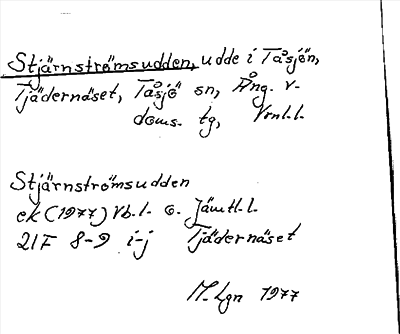 Stjärnströmsudden, udde i Tåsjön,
Tjädernäset, Tåsjö sn, Ång. v.
doms. tg, Vrnl.l.
Stjärnströmsudden
ek (1977) Vb.l. o. Jämtl.l.
21F 8-9 i-j Tjädernäset
M. Lgn 1977